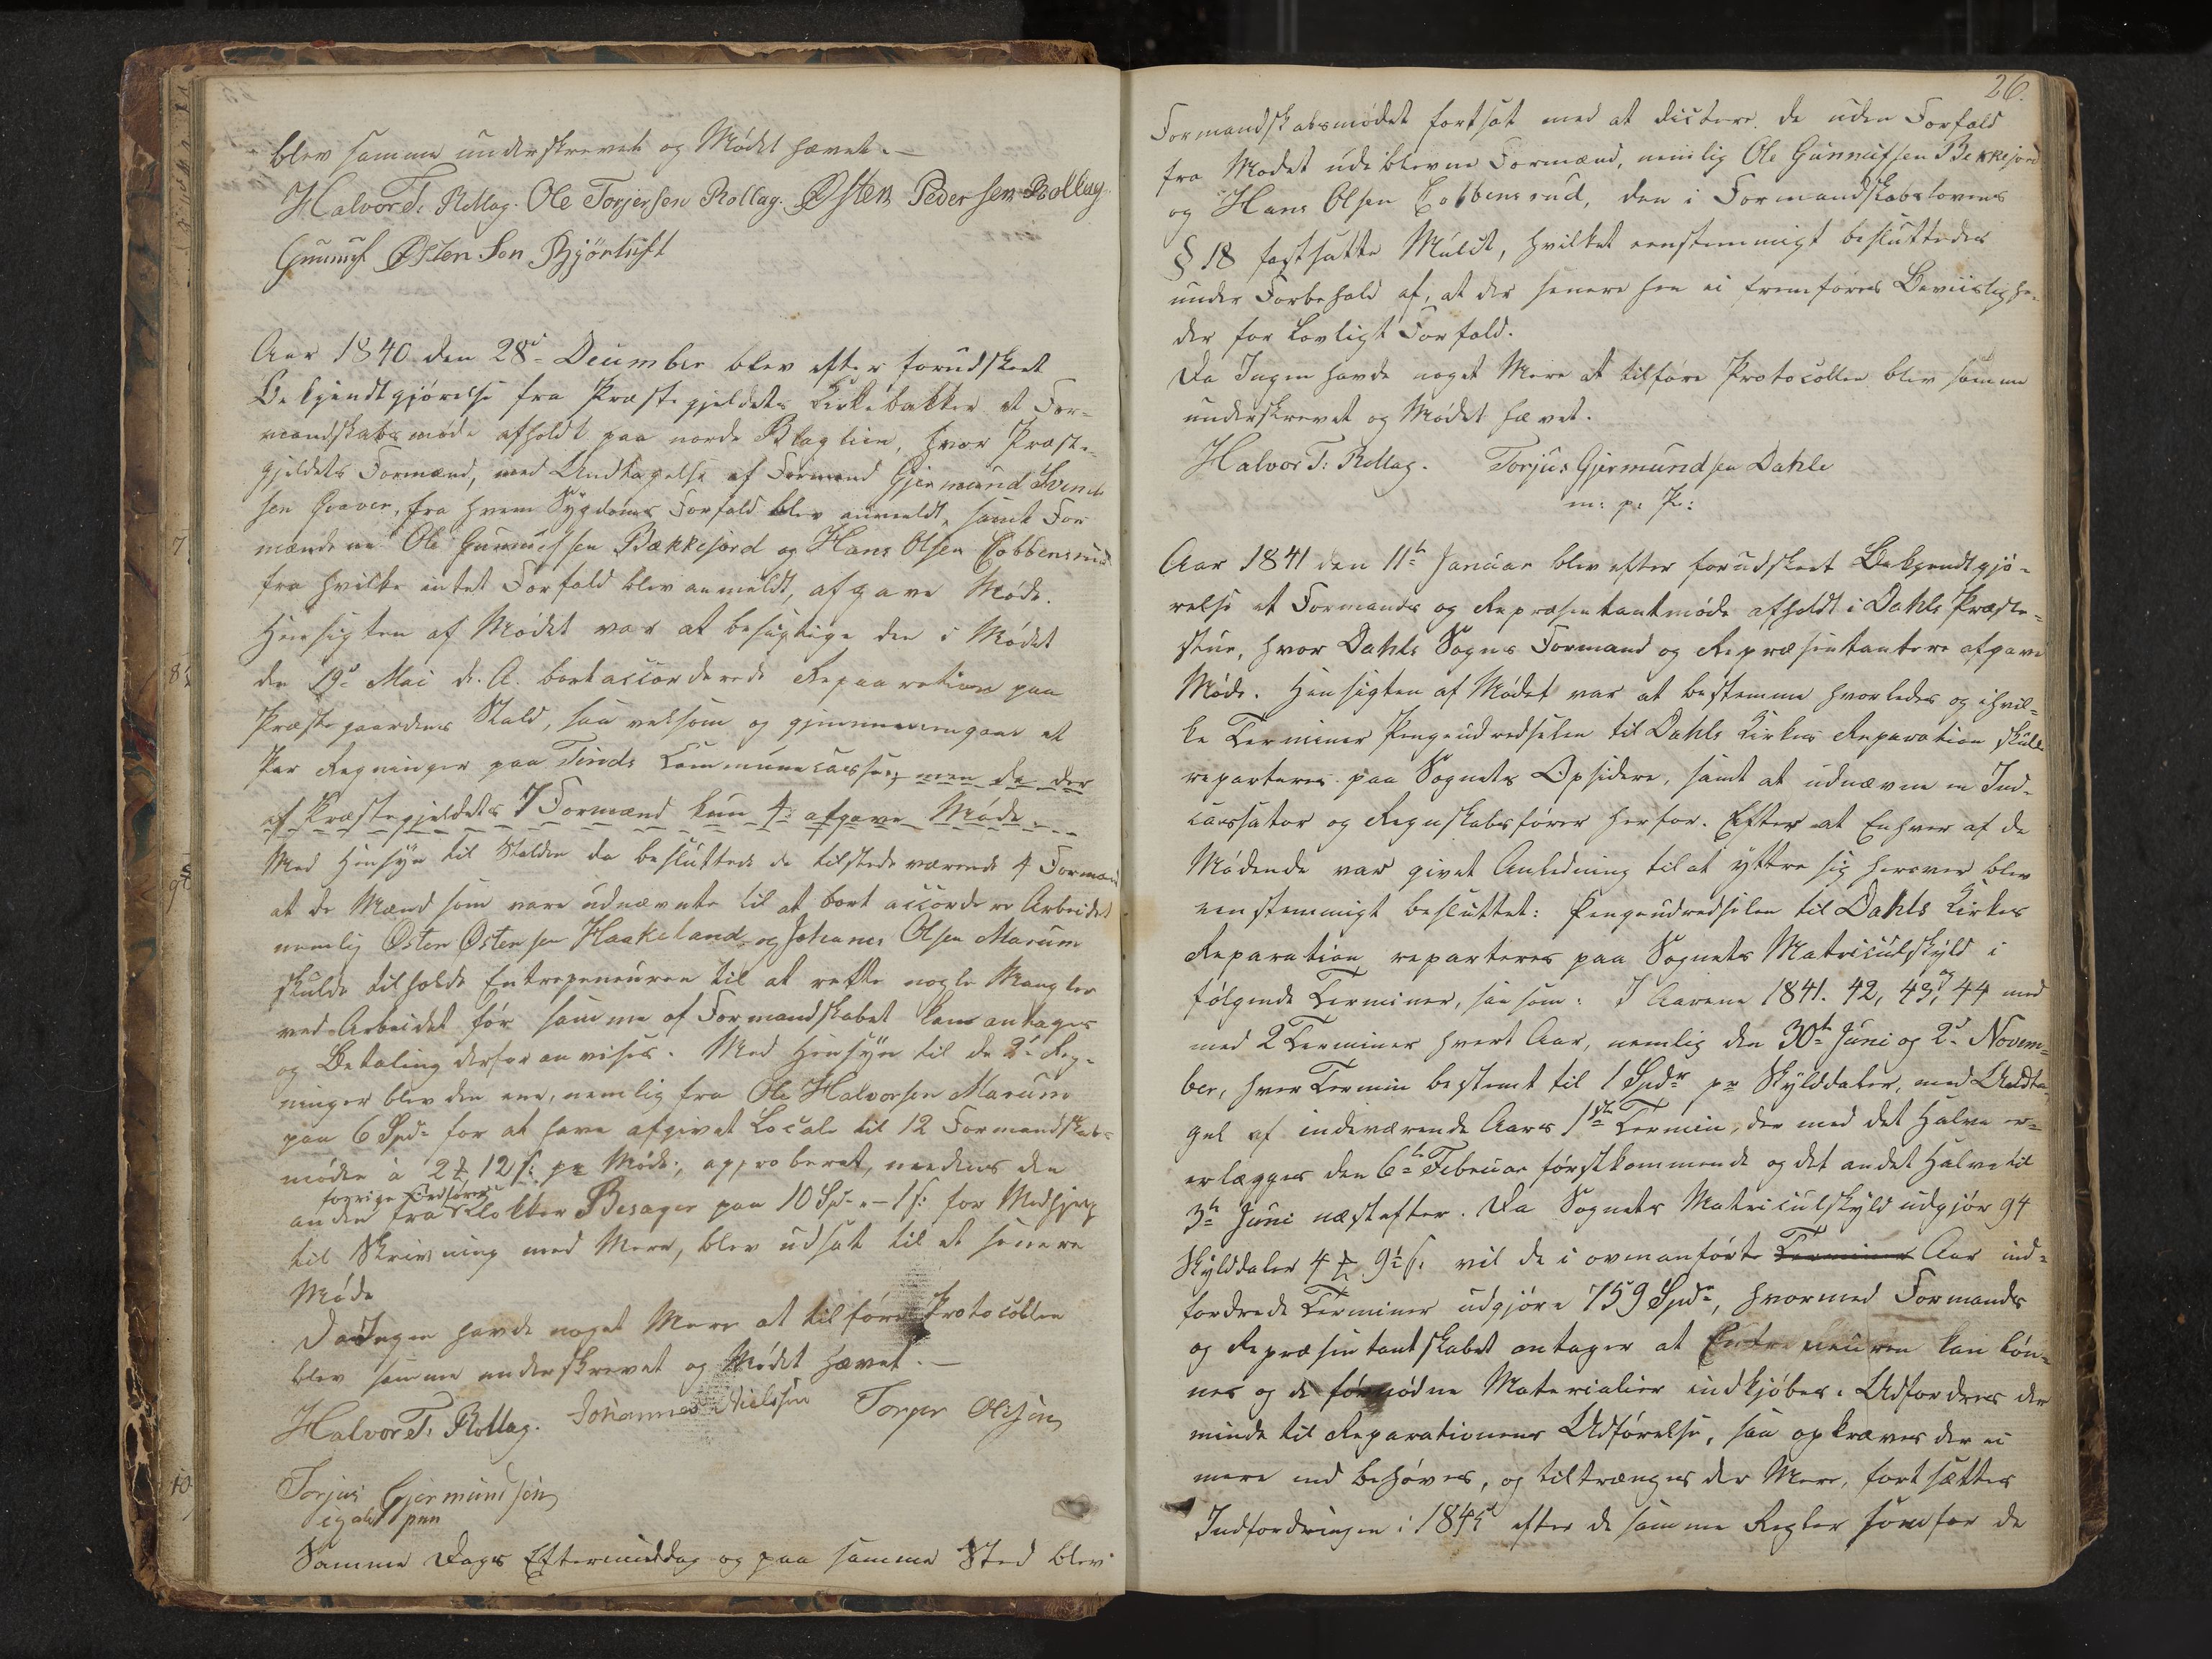 blev samme underskrevet og Mødet hævet.—
Halvor T: Rollag. Ole Torjersen Rollag. Østen Pedersen Rollag
Gunnuf Østen Son Bjørtuft
Aar 1840 den 28de December blev efter forudskeet
Bekjendtgjørelse fra Præstegjeldets Kirkebakker et For-
mandskabsmøde afholdt paa nordre Bragtien, hvor Præste-
gjeldets Formænd, med Undtagelse af Formand Gjermund Svend-
sen Graver, fra hvem Sygdoms Forfald blev anmeldt, samt For
mændene Ole Gunnufsen Bækkejord og Hans Olsen Cobbensrud
fra hvilke intet Forfald blev anmeldt, afgave Møde.
Hensigten af Mødet var at besigtige den i Mødet
den 19de Mai d. A. bortaccorderede Reparation paa
Præstegaardens Stald, saavelsom og gjennemgaae et
Par Regninger paa Tinds Communecasse, men da der
af Præstegjeldets 7 Formænd kun 4 afgave Møde.
Med Hensyn til Stalden da besluttede de tilstedeværende 4 Formænd
at de Mænd som vare udnævnte til at bortaccordere Arbeidet
nemlig Østen Østensen Haakeland og Johannes Olsen Marum
skulde tilholde Entrepeneuren til at rette nogle Mangler
ved Arbeidet før samme af Formandskabet kan antages
og Betaling derfor anvises. Med Hensyn til de 2de Reg-
ninger blev den ene, nemlig fra Ole Halvorsen Marum
paa 6 Spd: for at have afgivet Locale til 12 Formandskabs-
møder à 2 ₰ 12 s: pr Møde, approberet, medens den
forrige Ordfører
anden fra Klokker Besager paa 10 Spd - " - 1 s: for Medhjelp
til Skrivning med Mere, blev udsat til et senere
Møde
Da Ingen havde noget Mere at tilføre Protocollen
blev samme underskrevet og Mødet hævet.—
Halvor T: Rollag. Johannes Nielssen Torger Olesen
Torjus Gjermundsen
Samme Dags Eftermiddag og paa samme Sted blev
7
8
9
10
26.
Formandskabsmødet fortsat med at dictere de uden Forfald
fra Mødet udeblevne Formænd, nemlig Ole Gunnufsen Bekkejord
og Hans Olsen Cobbensrud, den i Formandskabslovens
§ 18 fastsatte Mulct, hvilket eenstemmigt besluttedes
under Forbehold af, at der senere hen ei fremføres Beviislighe-
der for lovligt Forfald.
Da Ingen havde noget Mere at tilføre Protocollen blev samme
underskrevet og Mødet hævet.
Halvor T: Rollag. Torjus Gjermundsen Dahle
m: p: P:
Aar 1841 den 11te Januar blev efter forudskeet Bekjendtgjø-
relse et Formands og Repræsentantmøde afholdt i Dahls Præste-
stue, hvor Dahls Sogns Formænd og Repræsentantere afgave
Møde. Hensigten af Mødet var at bestemme hvorledes og i hvil-
ke Terminer Pengeudredselen til Dahls Kirkes Reparation skulde
reparteres paa Sognets Opsidere, samt at udnævne en Ind-
cassator og Regnskabsfører herfor. Efter at Enhver af de
Mødende var givet Anledning til at yttre sig herover blev
eenstemmigt besluttet: Pengeudredselen til Dahls Kirkes
Reparation reparteres paa Sognets Matriculskyld i
følgende Terminer, saasom: I Aarene 1841. 42, 43, og 44 med
med 2 Terminer hvert Aar, nemlig den 30te Juni og 2de Novem-
ber, hver Termin bestemt til 1 Spdr pr Skylddaler, med Undta-
gel af indeværende Aars 1ste Termin, der med det Halve er-
erlægges den 6te Februar førstkommende og det andet Halve til
3te Juni næstefter. Da Sognets Matriculskyld udgjør 94
Skylddaler 4 ₰ 9½ s: vil de i ovenanførte Terminer Aar ind-
fordrede Terminer udgjøre 759 Spdr, hvormed Formands
og Repræsentantskabet antager at Entrepeneuren kan løn-
nes og de fornødne Materialier indkjøbes. Udfordres der
mindre til Reparationens Udførelse, saa opkræves der ei
mere end behøves, og tiltrænges der Mere, fortsættes
Indfordringen i 1845 efter de samme Regler som for de